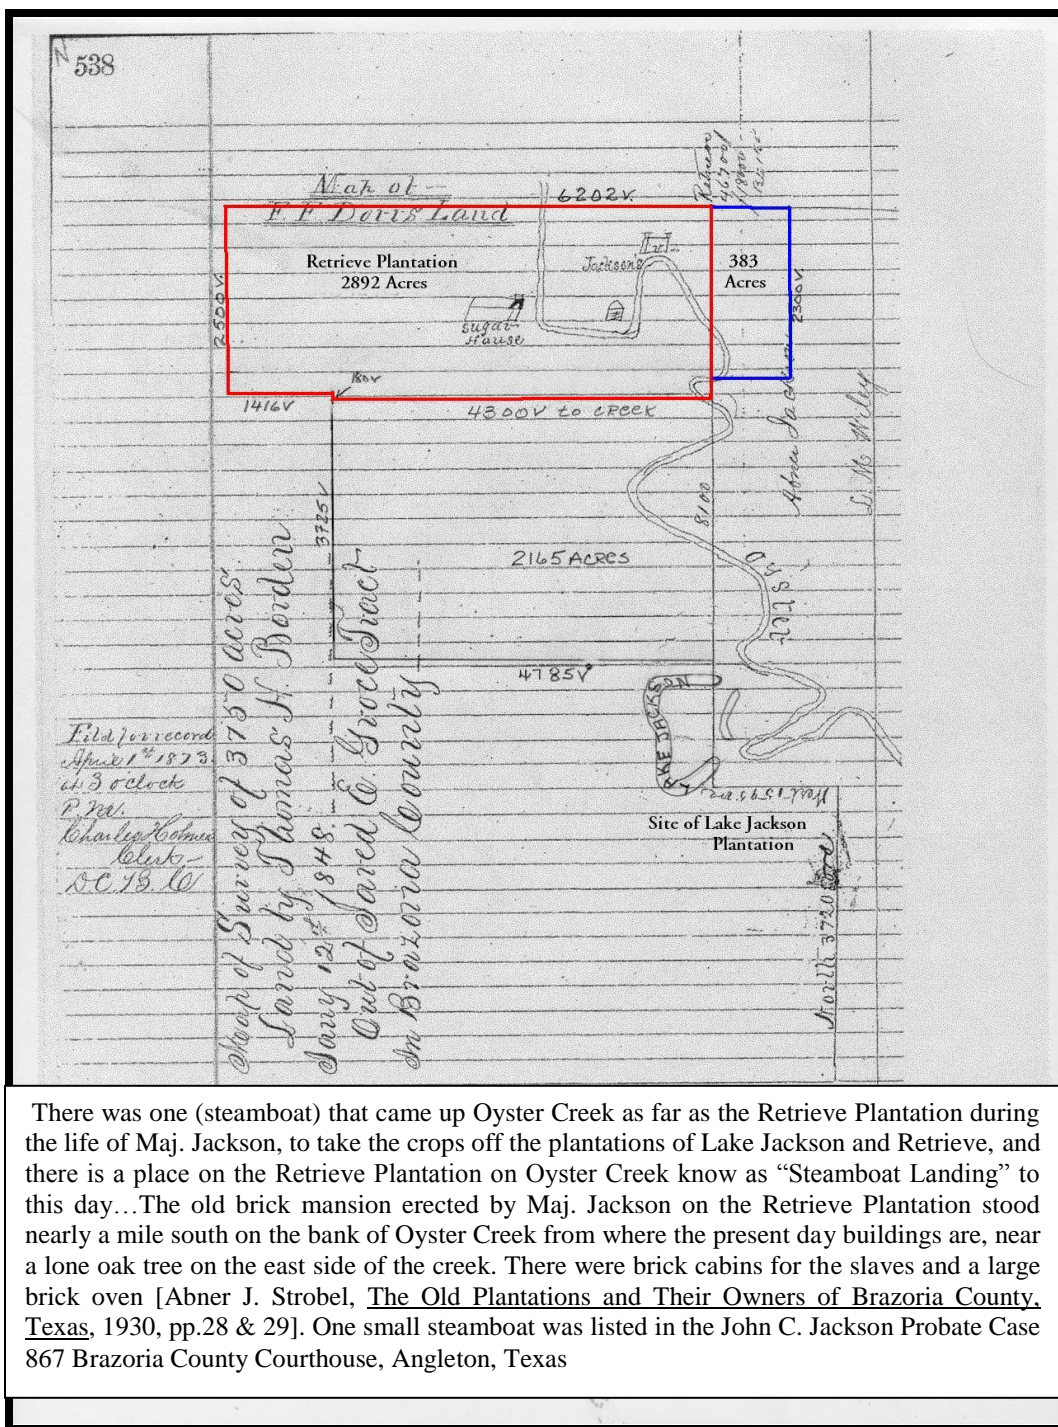 N
538
Map of
F. F. Dorrs Land
6202V.
Retrieve
Retrieve Plantation
2892 Acres
Jackson's
383
Acres
2500V.
2300V.
Sugar
House
180V
1416V
4300V to CREEK
Abner Jackson
L. M. Wiley
8100
3725V
2165 ACRES
4785V
LAKE JACKSON
West 1595 vrs
Site of Lake Jackson
Plantation
North 3720
Map of Survey of 3750 acres.
Land by Thomas H. Borden
Jany 12th 1848.
Out of Jared E. Groce Tract
In Brazoria County
Fild for record
April 1st 1873
at 3 o'clock
P. M.
Charles Holmes
Clerk
D.C.B.C
There was one (steamboat) that came up Oyster Creek as far as the Retrieve Plantation during
the life of Maj. Jackson, to take the crops off the plantations of Lake Jackson and Retrieve, and
there is a place on the Retrieve Plantation on Oyster Creek know as “Steamboat Landing” to
this day…The old brick mansion erected by Maj. Jackson on the Retrieve Plantation stood
nearly a mile south on the bank of Oyster Creek from where the present day buildings are, near
a lone oak tree on the east side of the creek. There were brick cabins for the slaves and a large
brick oven [Abner J. Strobel, The Old Plantations and Their Owners of Brazoria County,
Texas, 1930, pp.28 & 29]. One small steamboat was listed in the John C. Jackson Probate Case
867 Brazoria County Courthouse, Angleton, Texas